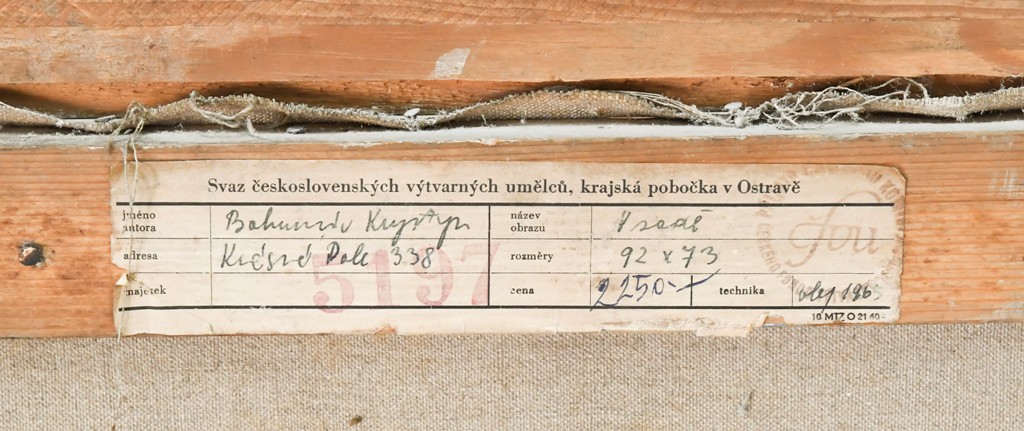 Svaz československých výtvarných umělců, krajská pobočka v Ostravě
jméno autora Bohumír Krystyn název obrazu V sadě
adresa Krásné Pole 338 rozměry 92 x 73
majetek 5197 cena 2250.- technika olej 1965
10 MTZ O 21 60